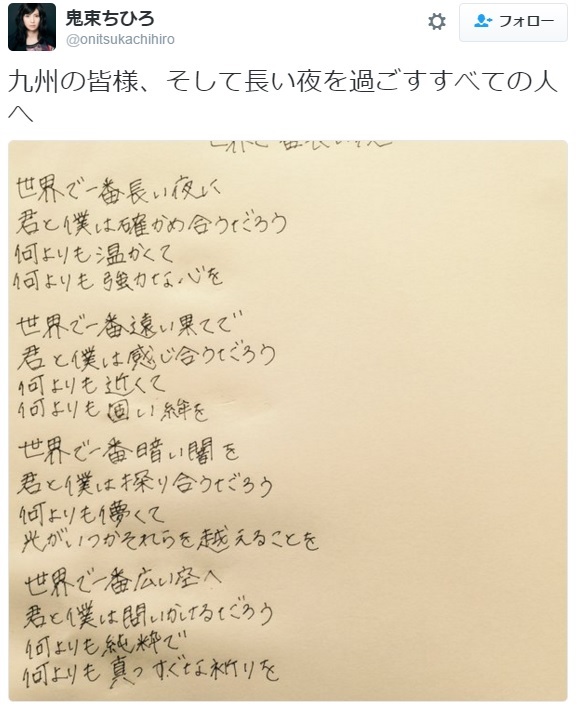 鬼束ちひろ
@onitsukachihiro
フォロー
九州の皆様、そして長い夜を過ごすすべての人
へ
世界で一番長い夜に
世界で一番長い夜に
君と僕は確かめ合うだろう
何よりも温かくて
何よりも強力な心を
世界で一番遠い果てで
君と僕は感じ合うだろう
何よりも近くて
何よりも固い絆を
世界で一番暗い闇を
君と僕は探り合うだろう
何よりも儚くて
光がいつかそれらを越えることを
世界で一番広い空へ
君と僕は問いかけるだろう
何よりも純粋で
何よりも真っすぐな祈りを